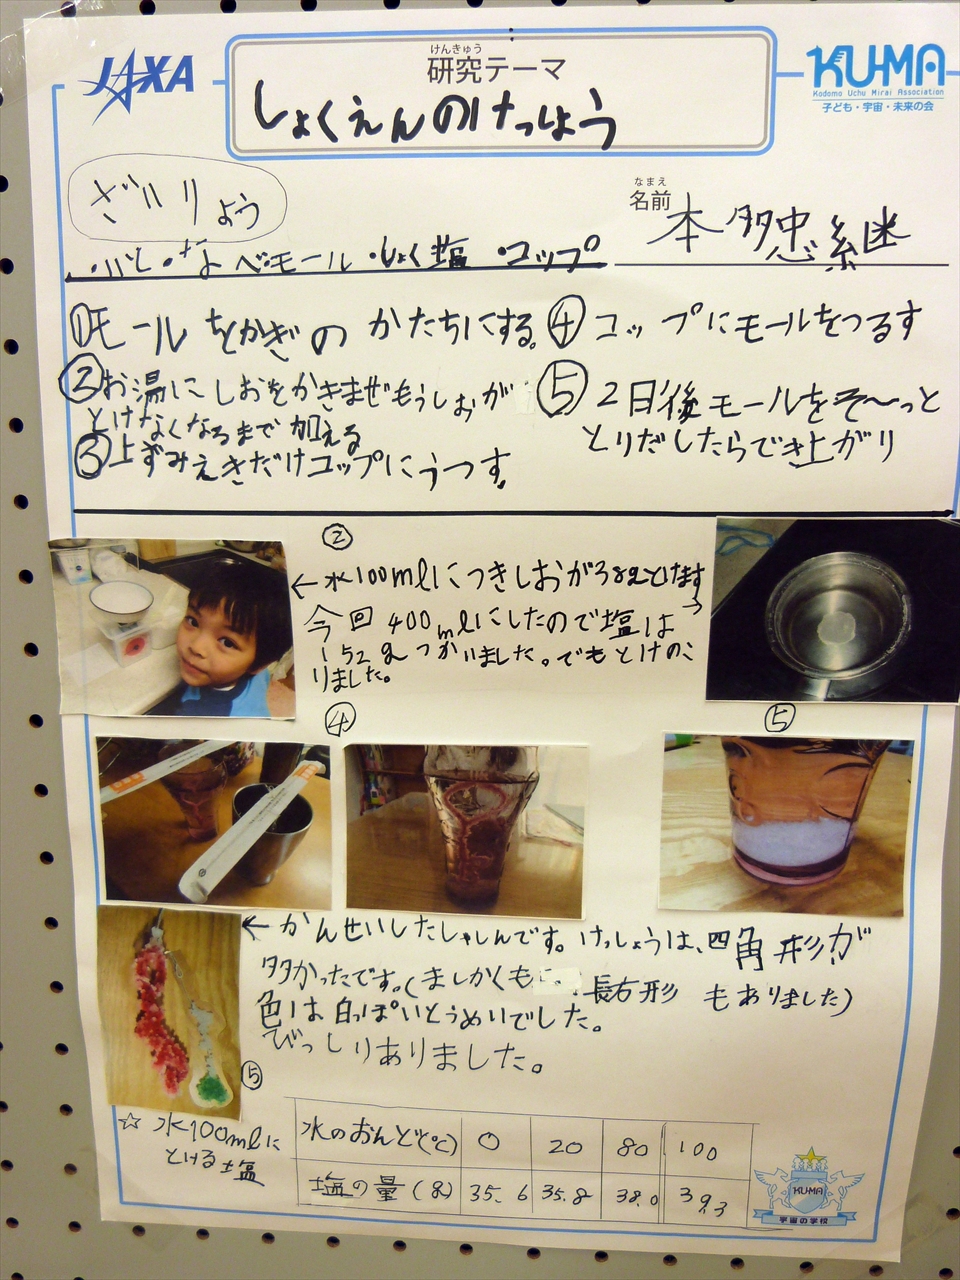 JAXA
けんきゅう
研究テーマ
しょくえんのけっしょう
KU-MA
Kodomo Uchu Mirai Association
子ども・宇宙・未来の会
ざいりょう
なまえ
名前
本多忠継
・なべ・モール・しょく塩・コップ
①モールをかぎのかたちにする。
②お湯にしおをかきまぜもうしおが
とけなくなるまで加える
③上ずみえきだけコップにうつす。
④コップにモールをつるす
⑤2日後モールをそ〜っと
とりだしたらでき上がり
②
←水100mlにつきしおが38gとけます
今回400mlにしたので塩は→
152gつかいました。でもとけのこ
りました。
④
⑤
←かんせいしたしゃしんです。けっしょうは、四角形が
多かったです。(ましかくも 長方形もありました)
色は白っぽいとうめいでした。
びっしりありました。
⑤
☆水100mlに
とける塩
水のおんど(℃) 0 20 80 100
塩の量(g) 35.6 35.8 38.0 39.3
KU-MA
宇宙の学校